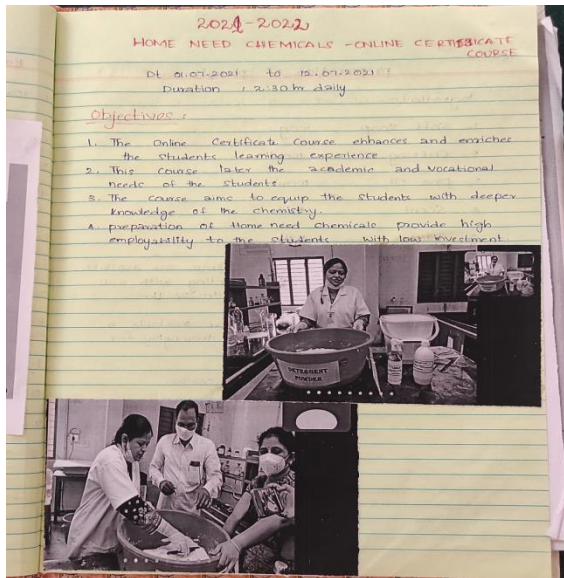 2021-2022
HOME NEED CHEMICALS - ONLINE CERTIFICATE
COURSE
Dt 01.07.2021 to 12.07.2021
Duration : 2:30 hr daily
Objectives :
1. The Online Certificate Course enhances and enriches
the students learning experience
2. This course later the academic and vocational
needs of the students
3. The course aims to equip the students with deeper
knowledge of the chemistry.
4. preparation of Home need chemicals provide high
employability to the students with low investment
DETERGENT
POWDER